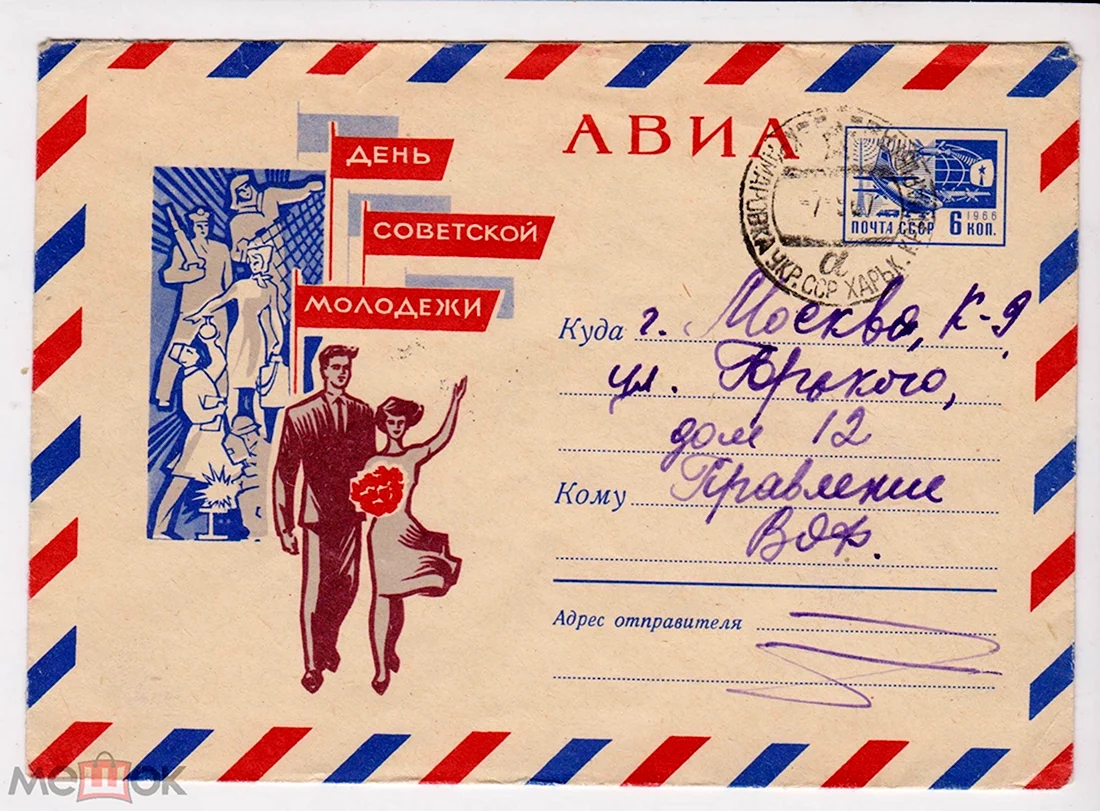 АВИА
ДЕНЬ
СОВЕТСКОЙ
МОЛОДЕЖИ
1966
ПОЧТА СССР 6 КОП.
УКР. ССР ХАРЬК.
а
Куда г. Москва, К-9
ул. Горького,
дом 12
Кому Правление
ВОФ.
Адрес отправителя
мешок